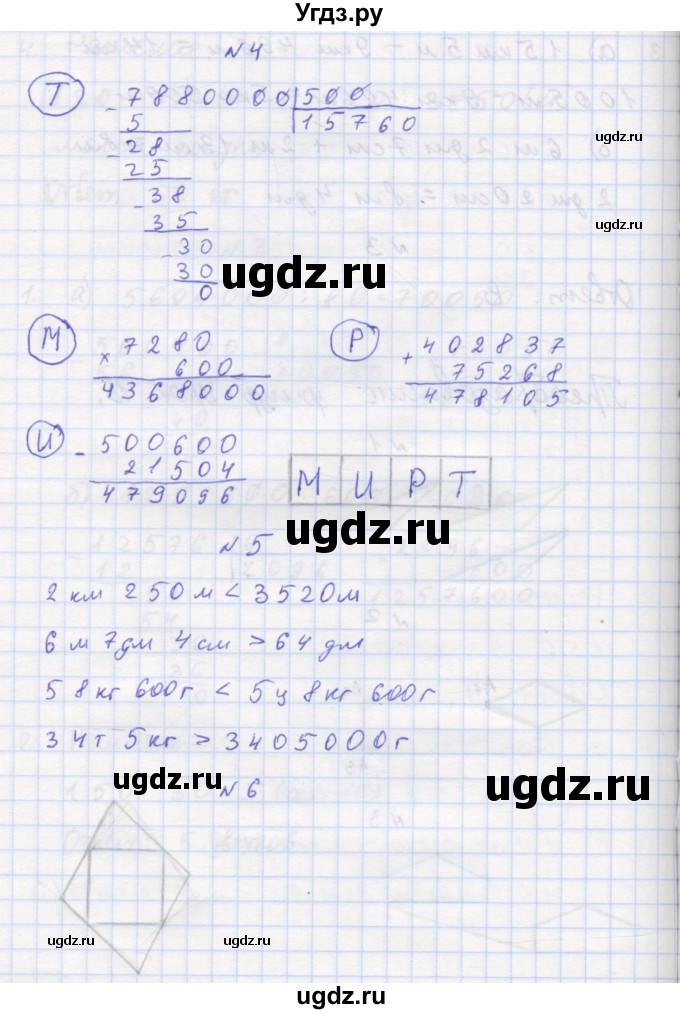 Угдз.ру
N 4
Т
- 7880000 | 500
5 | 15760
- 28
25
- 38
35
- 30
30
0
М
× 7280
600
4368000
Р
+ 402837
75268
478105
И
- 500600
21504
479096
М И Р Т
ugdz.ru
ugdz.ru
ugdz.ru
N 5
2 км 250 м < 3520 м
6 м 7 дм 4 см > 64 дм
58 кг 600 г < 5 ц 8 кг 600 г
34 т 5 кг > 3405000 г
ugdz.ru
ugdz.ru
N 6
ugdz.ru
ugdz.ru
ugdz.ru